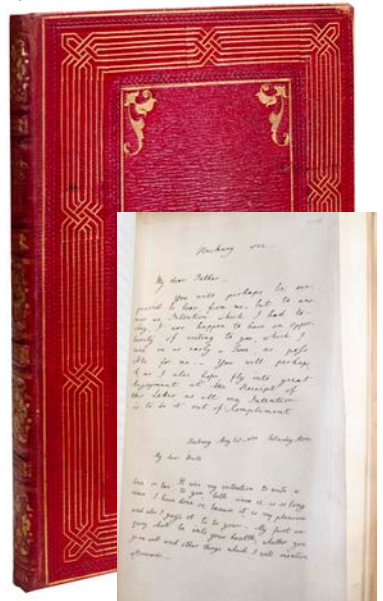 Hackney
My dear Father
You will perhaps be sur-
prised to hear from me, but to ans-
an Intention which I had to-
day, I now happen to have an oppor-
tunity of writing to you, which I
as early a Time as possi
ble for me. You will perhaps,
& as I also hope, fly into great
Enjoyment at the Receipt of
this Letter as all my Intention
is to do it out of Compliment
Hackney May Saturday
My dear
It was my intention to write a
to you both since it is so long
since I have done so, because it is my pleasure
and also I guess it to be your My first en-
quiry shall be into your health, whether you
are well and other things which I will mention
afterwards